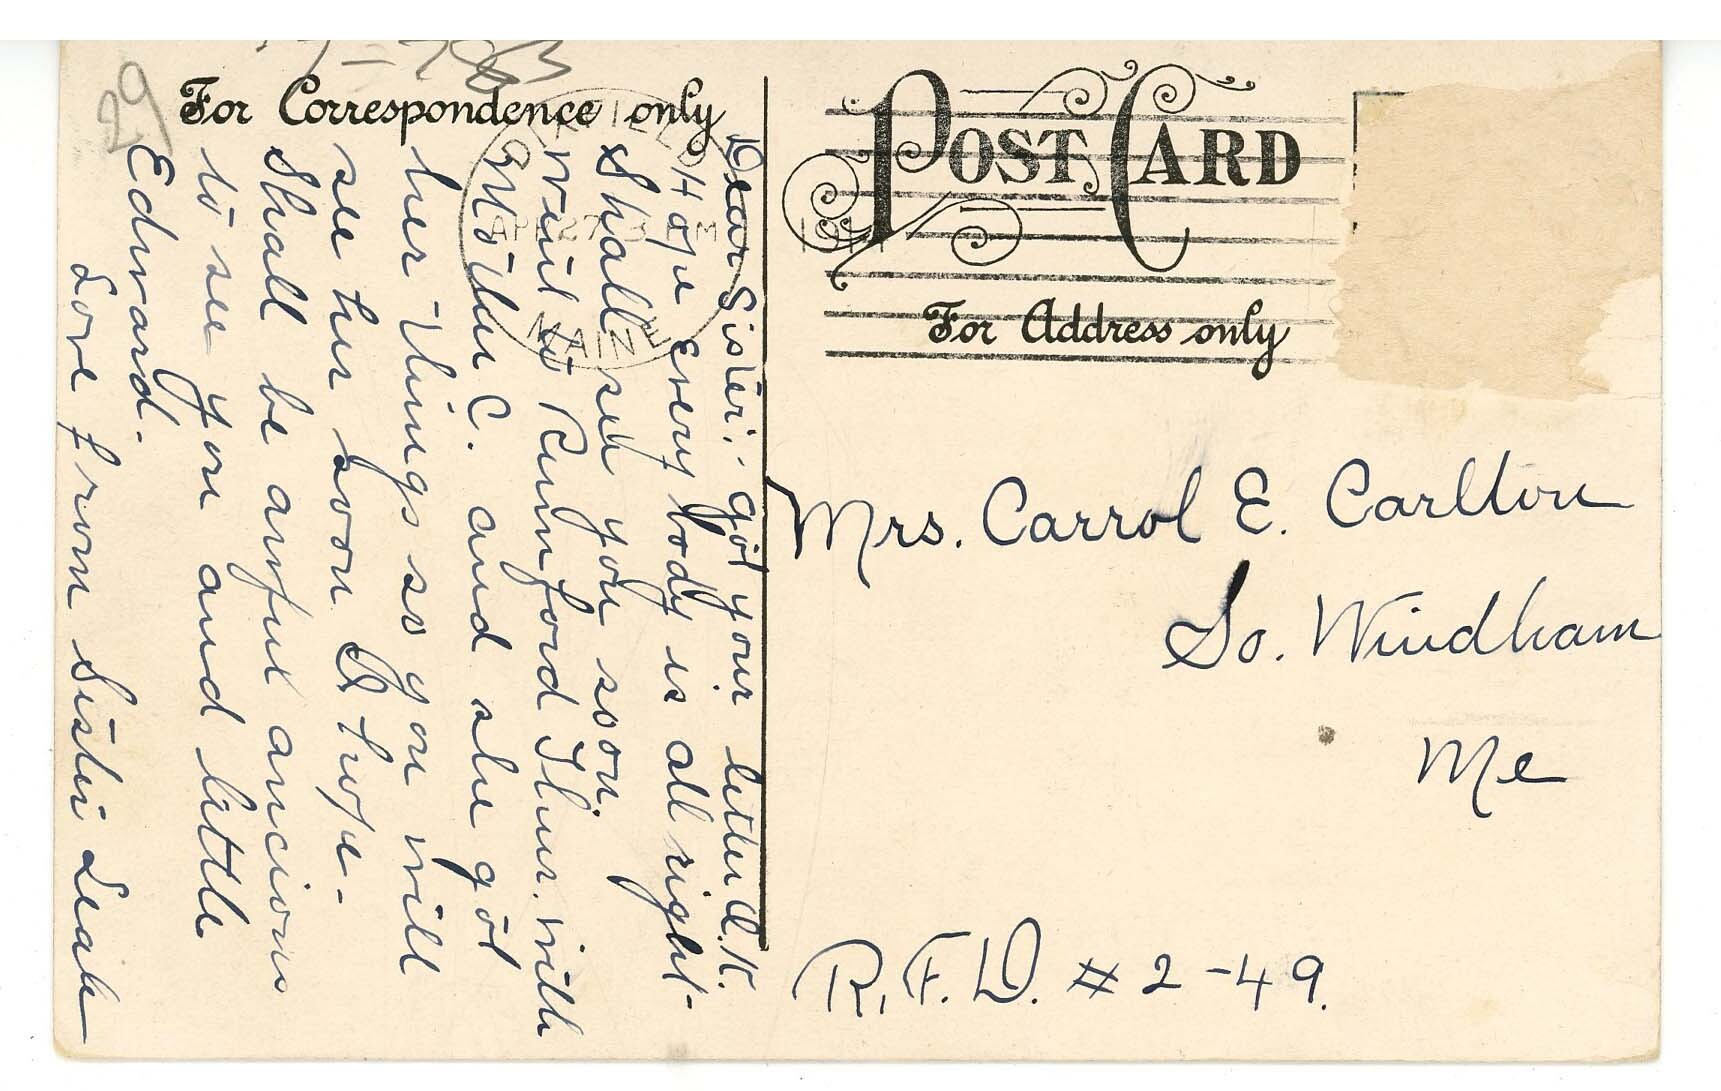 29
For Correspondence only
POST CARD
For Address only
APR 27 3 PM 1911
MAINE
Dear Sister;- got your letter O.K.
Hope every body is all right-
Shall see you soon.
went to Rumford Thur. with
Mother C. and she got
her things so you will
see her soon I hope-
Shall be awful ancious
to see you and little
Edward.
Love from Sister Leah
Mrs. Carrol E. Carlton
So. Windham
Me
R.F.D. # 2 - 49.